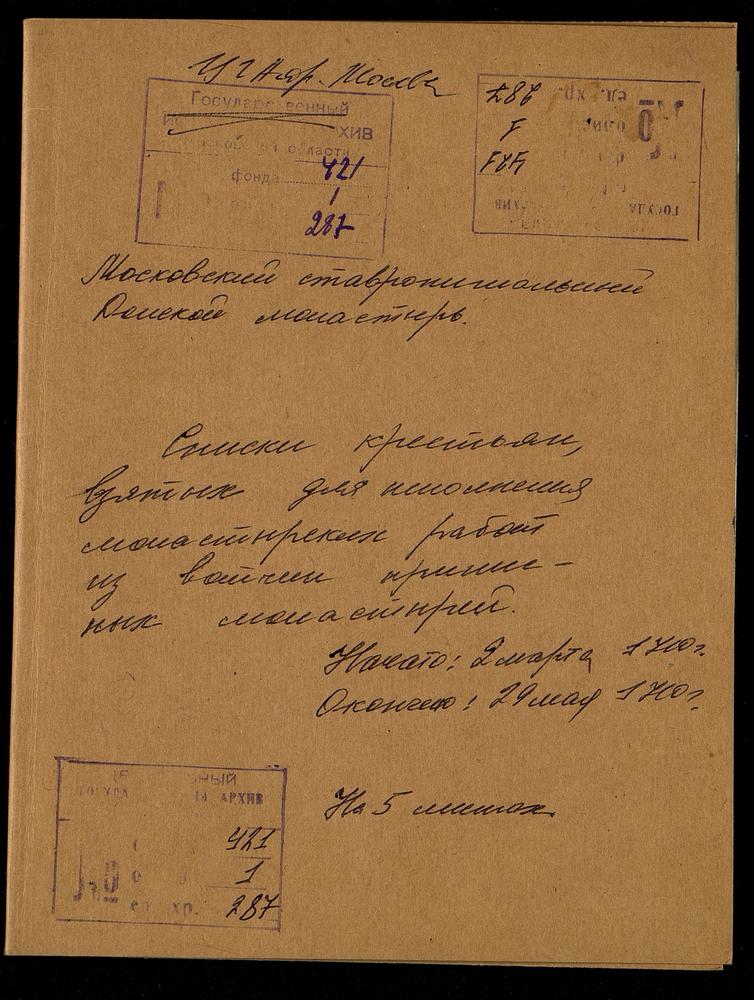 Государственный
ХИВ
области
фонда 421
1
287
287
1
421
ГОСУДА
Московский ставропигиальный
Донской монастырь.
Списки крестьян,
взятых для исполнения
монастырских работ
из вотчин припис-
ных монастырей.
Начато: 2 марта 1710 г.
Окончено: 29 мая 1710 г.
На 5 листах.
АРХИВ
421
1
ед. хр. 287